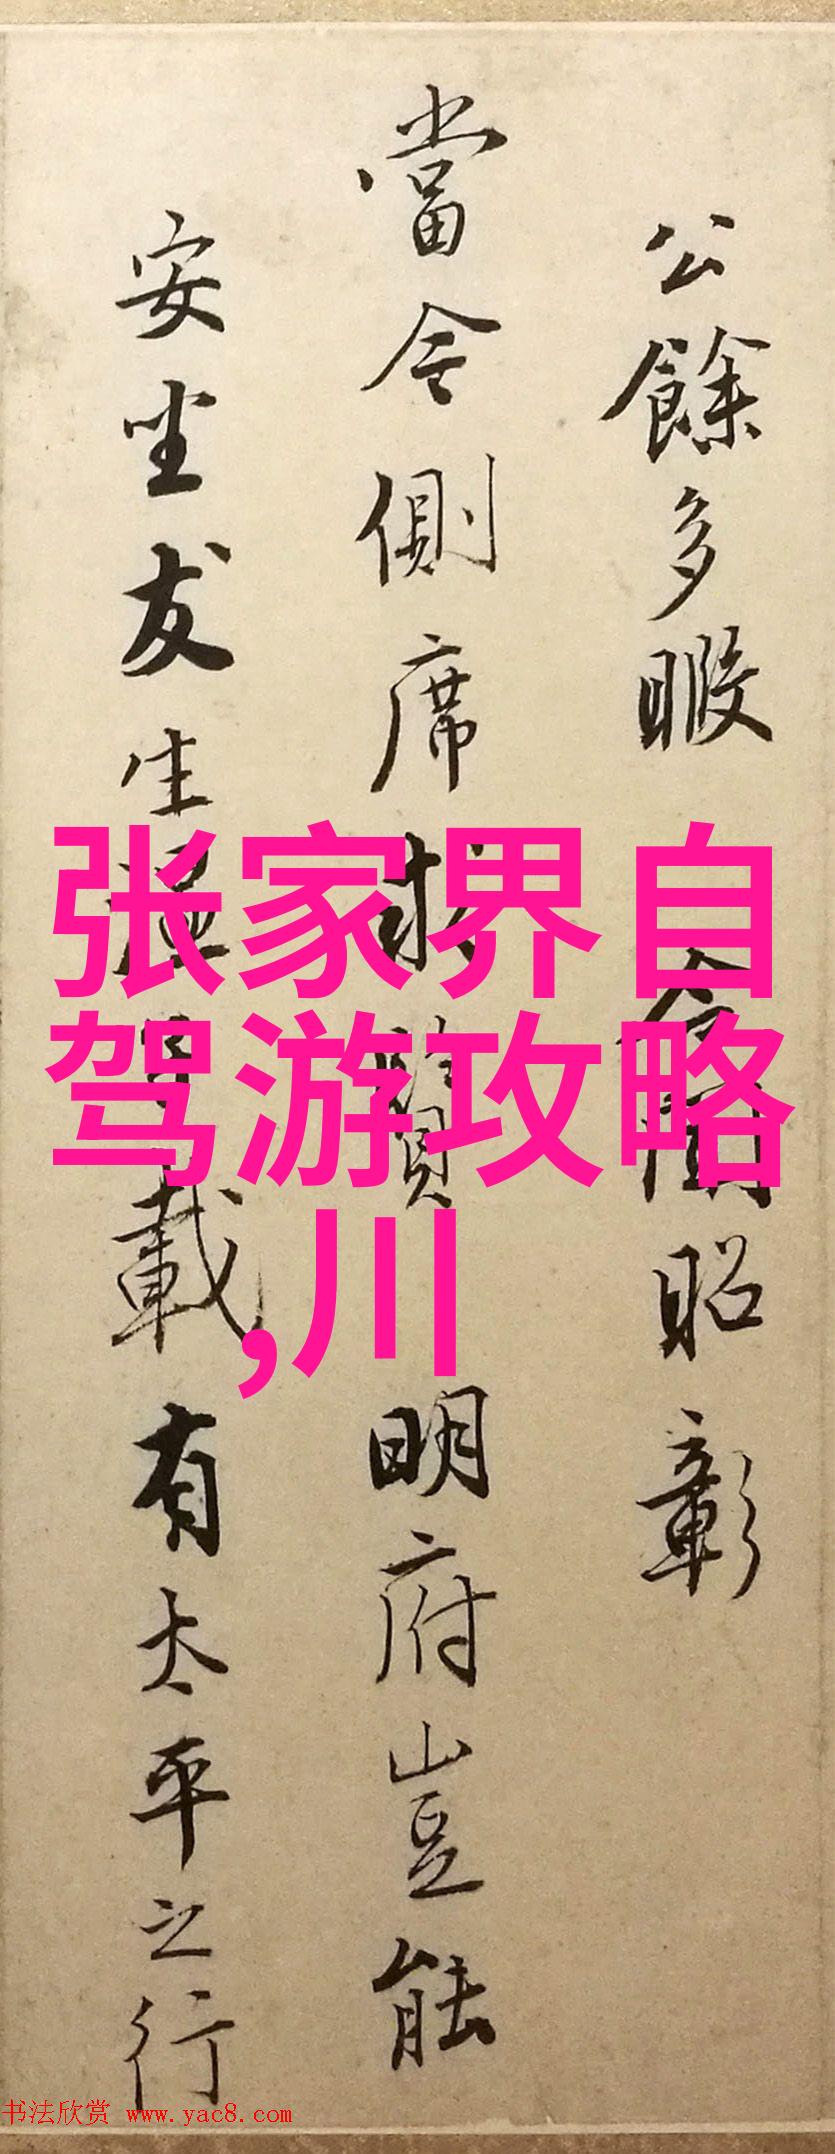 公餘多暇 命蘭昭彰
當今側席求賢 明府豈能
安坐友生還早載有太平之行
张家界自
驾游攻略
,川
书法欣赏 www.yac8.com